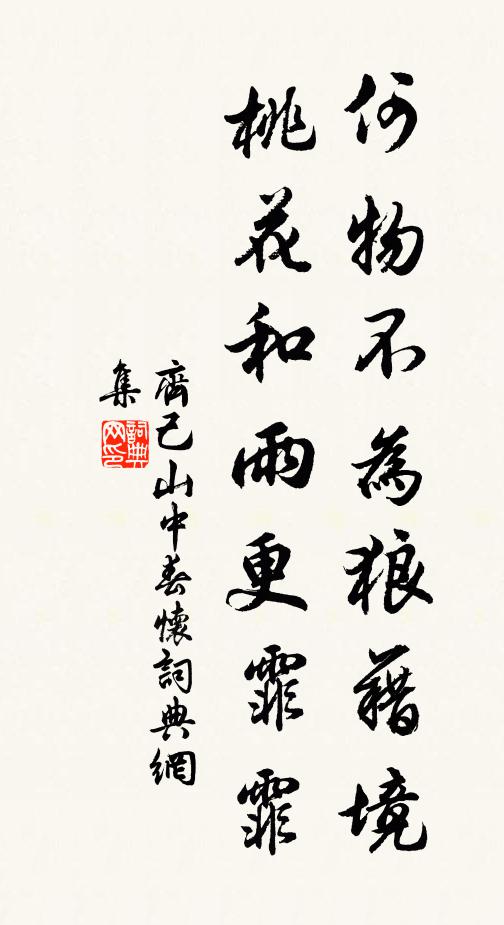 何物不為狼藉境
桃花和雨更霏霏
齊己山中春懷詞典網
集
詞典
网印